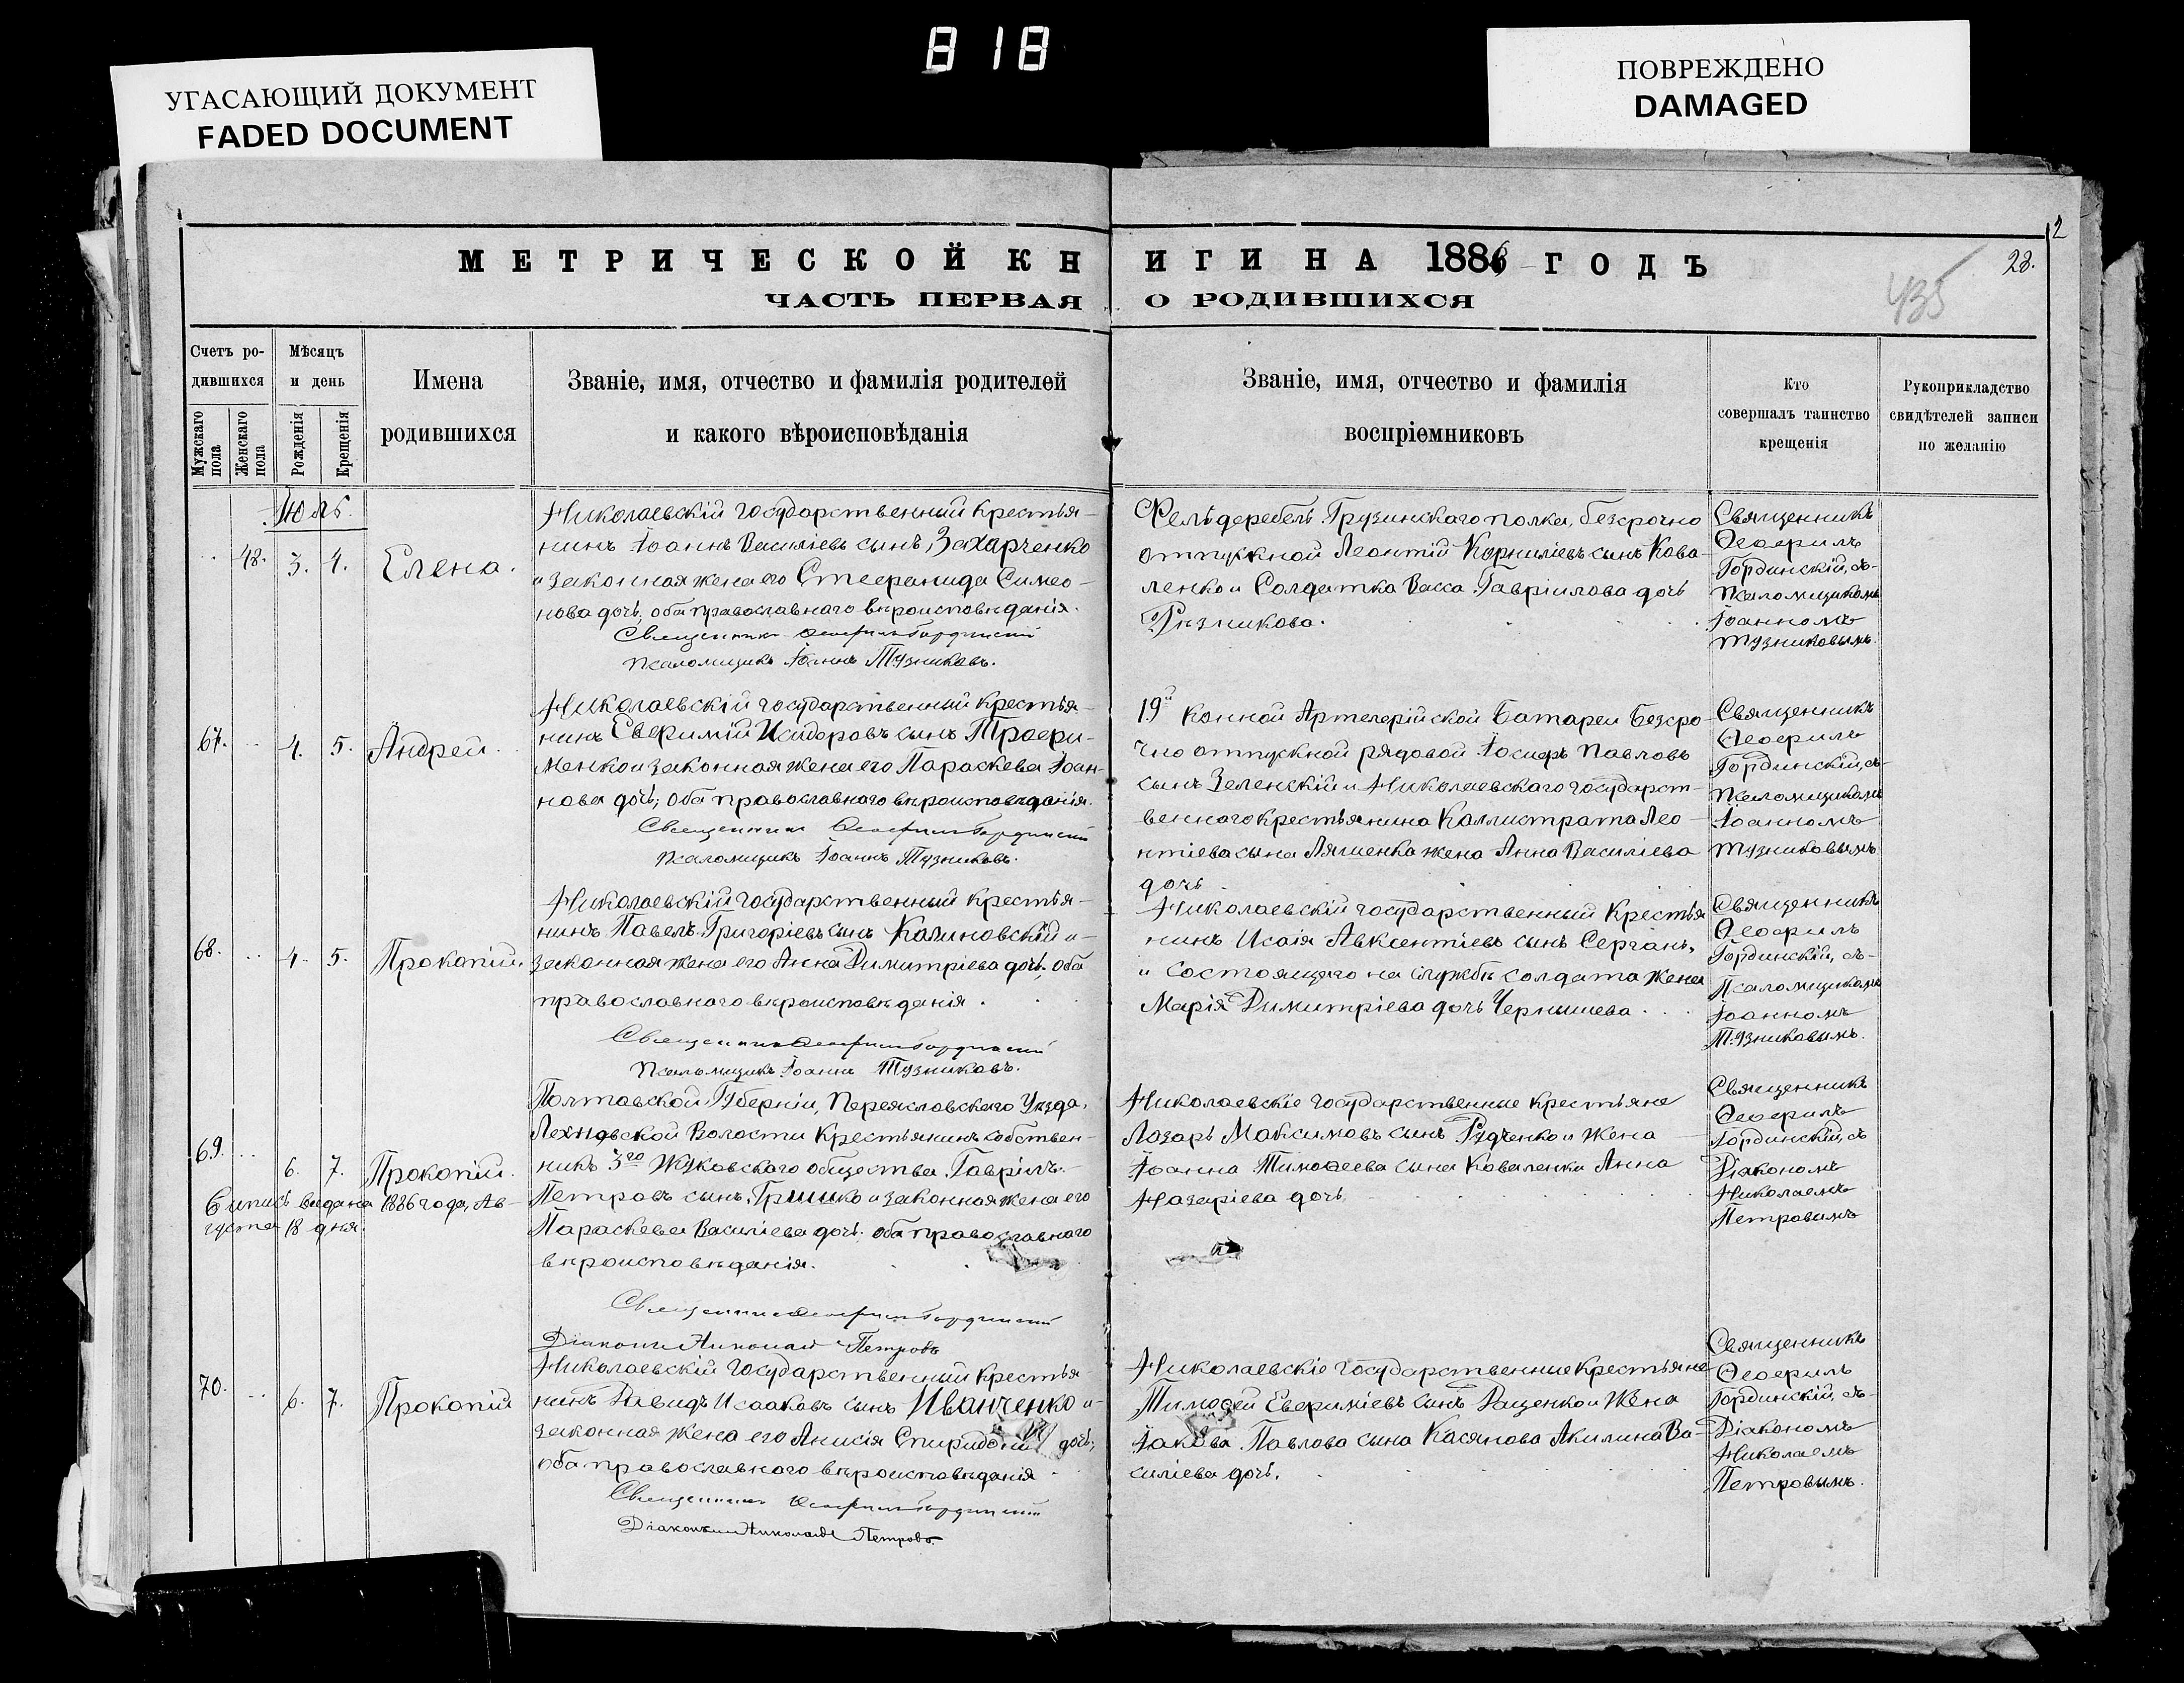 818
УГАСАЮЩИЙ ДОКУМЕНТ
FADED DOCUMENT
ПОВРЕЖДЕНО
DAMAGED
2
МЕТРИЧЕСКОЙ КНИГИ НА 1886 ГОДЪ
28.
ЧАСТЬ ПЕРВАЯ О РОДИВШИХСЯ
435
Счетъ ро-
дившихся
Мужскаго пола
Женскаго пола
Мѣсяцъ
и день
Рожденія
Крещенія
Имена
родившихся
Званіе, имя, отчество и фамилія родителей
и какого вѣроисповѣданія
Званіе, имя, отчество и фамилія
воспріемниковъ
Кто
совершалъ таинство
крещенія
Рукоприкладство
свидѣтелей записи
по желанію
Іюль.
48. 3. 4. Елена.
Николаевскій государственный крестья-
нинъ Іоаннъ Василіевъ сынъ, Захарченко
и законная жена его Стефанида Симео-
нова дочь, оба православнаго вѣроисповѣданія.
Священникъ Ѳеофилъ Гординскій
Псаломщикъ Іоаннъ Тузниковъ.
Фельдфебель Грузинскаго полка, безсрочно
отпускной Леонтій Корниліевъ сынъ Кова-
ленко и Солдатка Васса Гавріилова дочь
Рѣзникова.
Священникъ
Ѳеофилъ
Гординскій, съ-
Псаломщикомъ
Іоанномъ
Тузниковымъ.
67. 4. 5. Андрей.
Николаевскій государственный крестья-
нинъ Евфимій Исидоровъ сынъ Трофи-
менко и законная жена его Параскева Іоан-
нова дочь; оба православнаго вѣроисповѣданія.
Священникъ Ѳеофилъ Гординскій
Псаломщикъ Іоаннъ Тузниковъ.
19й Конной Артелерійской Батареи Безсро-
чно отпускной рядовой Іосифъ Павловъ
сынъ Зеленскій и Николаевскаго государст-
веннаго крестьянина Каллистрата Лео-
нтіева сына Ляшенка жена Анна Василіева
дочь
Священникъ
Ѳеофилъ
Гординскій, съ-
Псаломщикомъ
Іоанномъ
Тузниковымъ
68. 4. 5. Прокопій.
Николаевскій государственный крестья-
нинъ Павелъ Григоріевъ сынъ Калиновскій и-
законная жена его Анна Димитріева дочь, оба
православнаго вѣроисповѣданія.
Священникъ Ѳеофилъ Гординскій
Псаломщикъ Іоаннъ Тузниковъ.
Николаевскій государственный Крестья
нинъ Исаія Авксентіевъ сынъ Сергань,
и состоящаго на службѣ солдата жена
Марія Димитріева дочь Чернышева.
Священникъ
Ѳеофилъ
Гординскій, съ-
Псаломщикомъ
Іоанномъ
Тузниковымъ.
69. 6. 7. Прокопій.
Выпись выдана 1886 года, Ав-
густа 18 дня.
Полтавской Губерніи, Переясловскаго Уѣзда,
Лехновской Волости Крестьянинъ собствен-
никъ 3го Жуковскаго общества Гавріилъ
Петровъ сынъ, Гришко и законная жена его
Параскева Василіева дочь. оба православнаго
вѣроисповѣданія.
Священникъ Ѳеофилъ Гординскій
Діаконъ Николай Петровъ
Николаевскіе государственные крестьяне
Лазарь Максимовъ сынъ Рудченко и жена
Іоанна Тимоѳеева сына Коваленки Анна
Назаріева дочь.
Священникъ
Ѳеофилъ
Гординскій, съ
Діакономъ
Николаемъ
Петровымъ
70. 6. 7. Прокопій
Николаевскій Государственный Крестья
нинъ Давидъ Исааковъ сынъ Иванченко и-
законная жена его Анисія дочь;
оба православнаго вѣроисповѣданія
Священникъ Ѳеофилъ Гординскій
Діаконъ Николай Петровъ.
Николаевскіе Государственные крестьяне
Тимоѳей Евфиміевъ сынъ Ращенко и Жена
Іакова Павлова сына Касянова Акилина Ва-
силіева дочь.
Священникъ
Ѳеофилъ
Гординскій, съ-
Діакономъ
Николаемъ
Петровымъ.